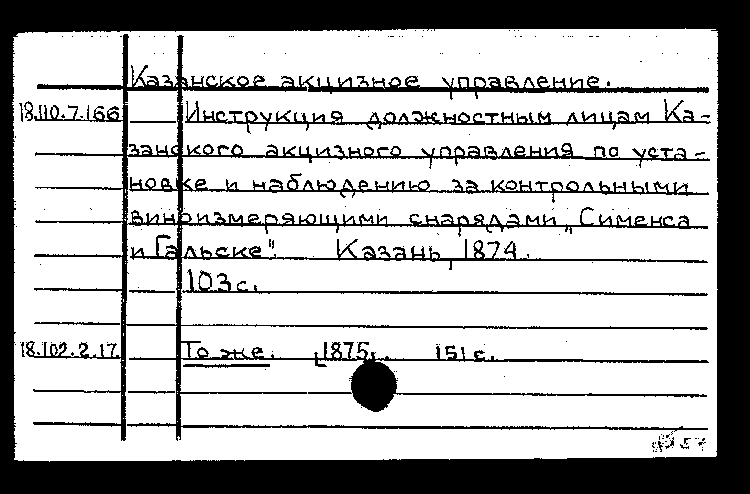 Казанское акцизное управление.
18.110.7.166 Инструкция должностным лицам Ка-
занского акцизного управления по уста-
новке и наблюдению за контрольными
виноизмеряющими снарядами „Сименса
и Гальске". Казань, 1874.
103 с.
18.102.2.17. То же. [1875]. 151 с.